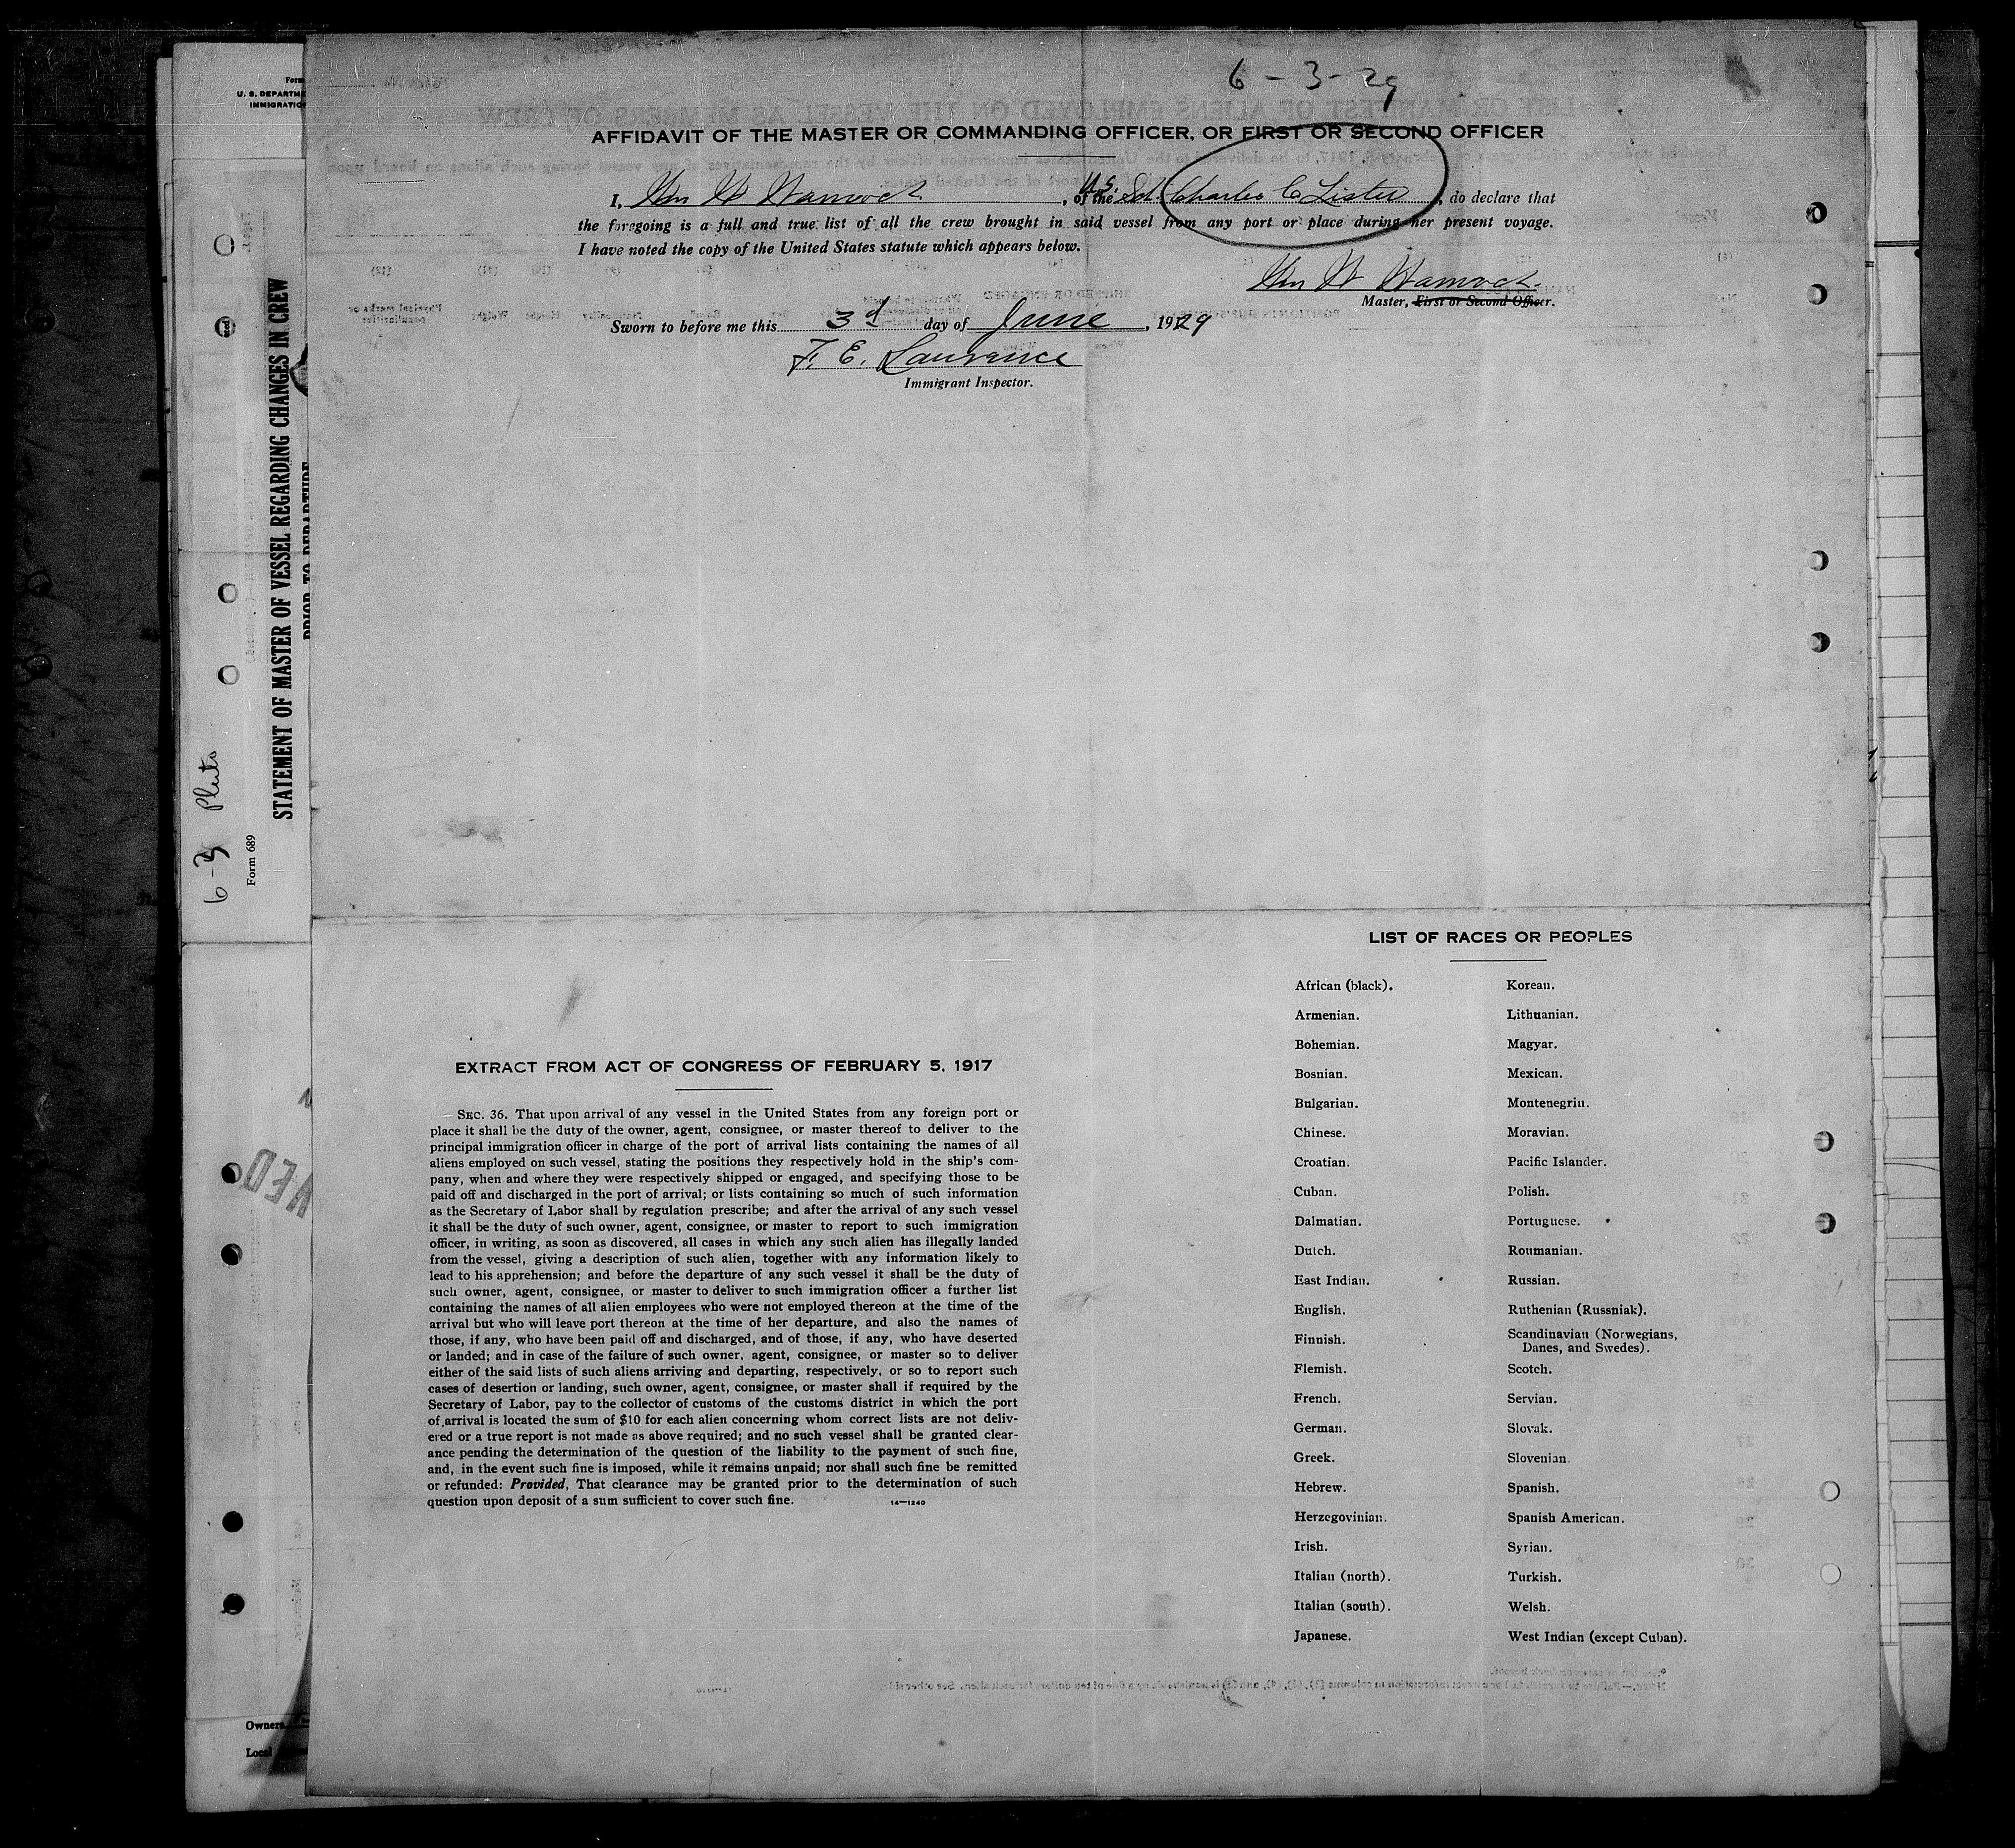 6-3-29
AFFIDAVIT OF THE MASTER OR COMMANDING OFFICER, OR FIRST OR SECOND OFFICER
I, Wm H , of the U.S. Sch. Charles C Lister, do declare that
the foregoing is a full and true list of all the crew brought in said vessel from any port or place during her present voyage.
I have noted the copy of the United States statute which appears below.
Wm H
Master, First or Second Officer.
Sworn to before me this 3d day of June, 1929
F. E. Lawrance
Immigrant Inspector.
Form
U. S. DEPARTME
IMMIGRATIO
STATEMENT OF MASTER OF VESSEL REGARDING CHANGES IN CREW
PRIOR TO DEPARTURE
Form 689
6-3 Pluto
EXTRACT FROM ACT OF CONGRESS OF FEBRUARY 5, 1917
SEC. 36. That upon arrival of any vessel in the United States from any foreign port or
place it shall be the duty of the owner, agent, consignee, or master thereof to deliver to the
principal immigration officer in charge of the port of arrival lists containing the names of all
aliens employed on such vessel, stating the positions they respectively hold in the ship's com-
pany, when and where they were respectively shipped or engaged, and specifying those to be
paid off and discharged in the port of arrival; or lists containing so much of such information
as the Secretary of Labor shall by regulation prescribe; and after the arrival of any such vessel
it shall be the duty of such owner, agent, consignee, or master to report to such immigration
officer, in writing, as soon as discovered, all cases in which any such alien has illegally landed
from the vessel, giving a description of such alien, together with any information likely to
lead to his apprehension; and before the departure of any such vessel it shall be the duty of
such owner, agent, consignee, or master to deliver to such immigration officer a further list
containing the names of all alien employees who were not employed thereon at the time of the
arrival but who will leave port thereon at the time of her departure, and also the names of
those, if any, who have been paid off and discharged, and of those, if any, who have deserted
or landed; and in case of the failure of such owner, agent, consignee, or master so to deliver
either of the said lists of such aliens arriving and departing, respectively, or so to report such
cases of desertion or landing, such owner, agent, consignee, or master shall if required by the
Secretary of Labor, pay to the collector of customs of the customs district in which the port
of arrival is located the sum of $10 for each alien concerning whom correct lists are not deliv-
ered or a true report is not made as above required; and no such vessel shall be granted clear-
ance pending the determination of the question of the liability to the payment of such fine,
and, in the event such fine is imposed, while it remains unpaid; nor shall such fine be remitted
or refunded: Provided, That clearance may be granted prior to the determination of such
question upon deposit of a sum sufficient to cover such fine. 14—1240
LIST OF RACES OR PEOPLES
African (black). Korean.
Armenian. Lithuanian.
Bohemian. Magyar.
Bosnian. Mexican.
Bulgarian. Montenegrin.
Chinese. Moravian.
Croatian. Pacific Islander.
Cuban. Polish.
Dalmatian. Portuguese.
Dutch. Roumanian.
East Indian. Russian.
English. Ruthenian (Russniak).
Finnish. Scandinavian (Norwegians,
Danes, and Swedes).
Flemish. Scotch.
French. Servian.
German. Slovak.
Greek. Slovenian.
Hebrew. Spanish.
Herzegovinian. Spanish American.
Irish. Syrian.
Italian (north). Turkish.
Italian (south). Welsh.
Japanese. West Indian (except Cuban).
Owners
Local